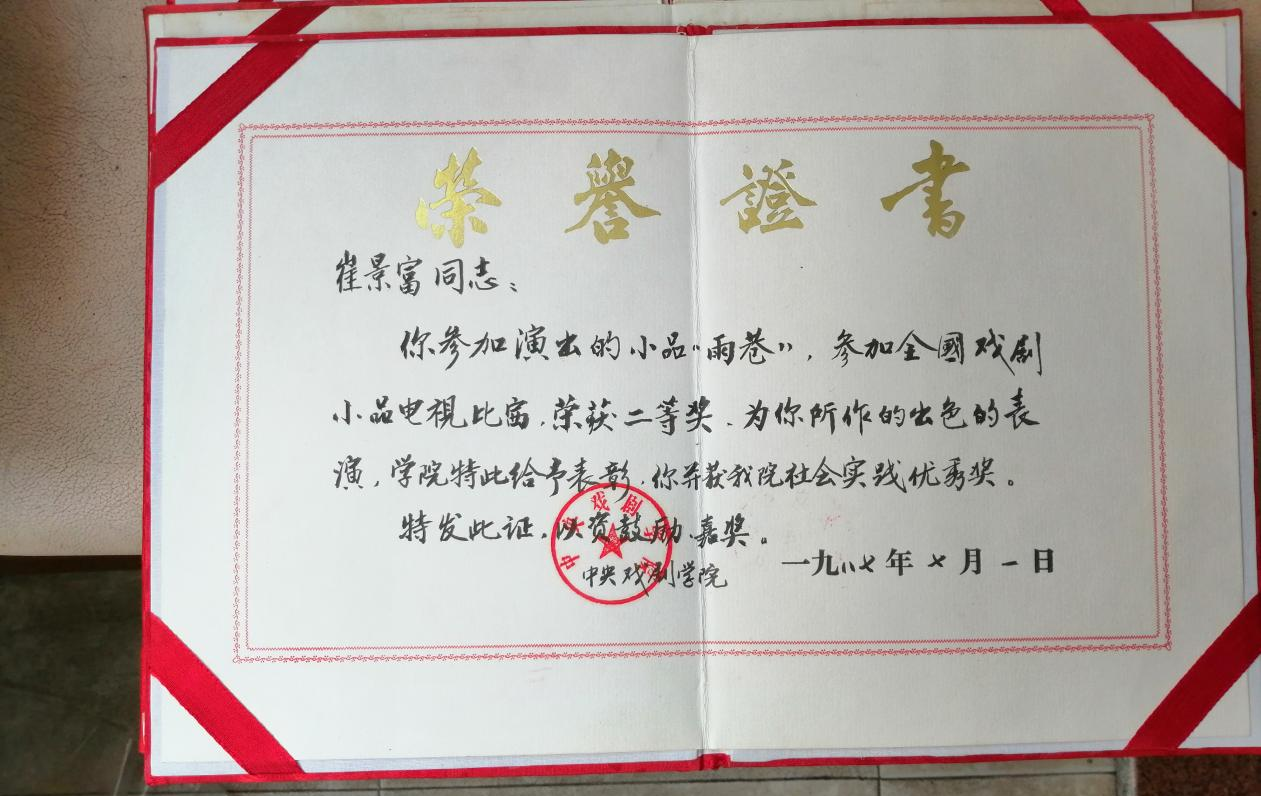 荣誉證書
崔景富同志：
你参加演出的小品“雨巷”，参加全國戏剧
小品电視比赛，荣获二等奖，为你所作的出色的表
演，学院特此给予表彰，你并获我院社会实践优秀奖。
特发此证，以资鼓励、嘉奖。
中央戏剧学院
中央戏剧学院
一九八七年七月一日